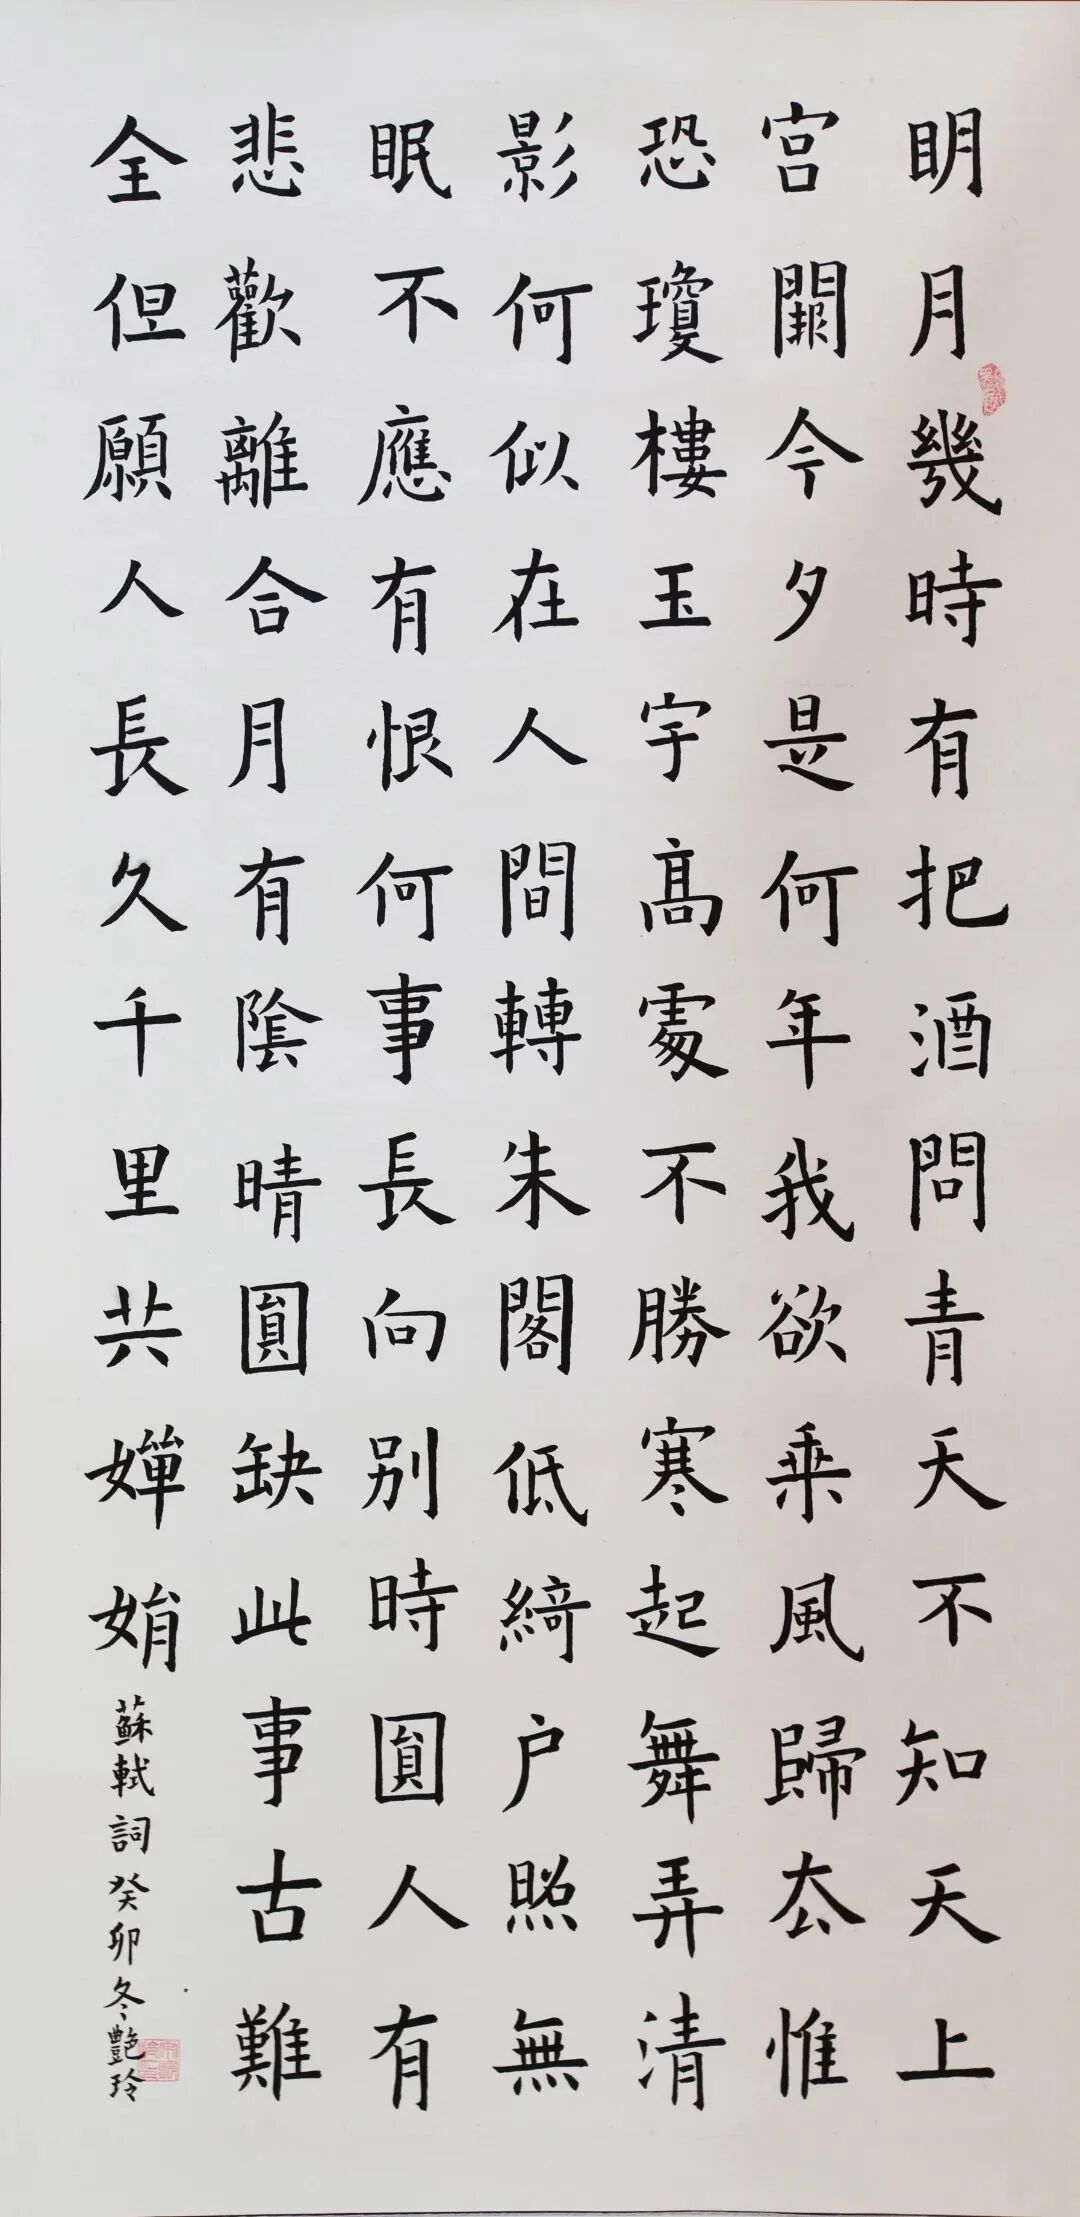 明月幾時有把酒問青天不知天上
宫闕今夕是何年我欲乗風歸去惟
恐瓊樓玉宇高處不勝寒起舞弄清
影何似在人間轉朱閣低綺户照無
眠不應有恨何事長向别時圓人有
悲歡離合月有陰晴圓缺此事古難
全但願人長久千里共嬋娟
蘇軾詞癸卯冬艷玲